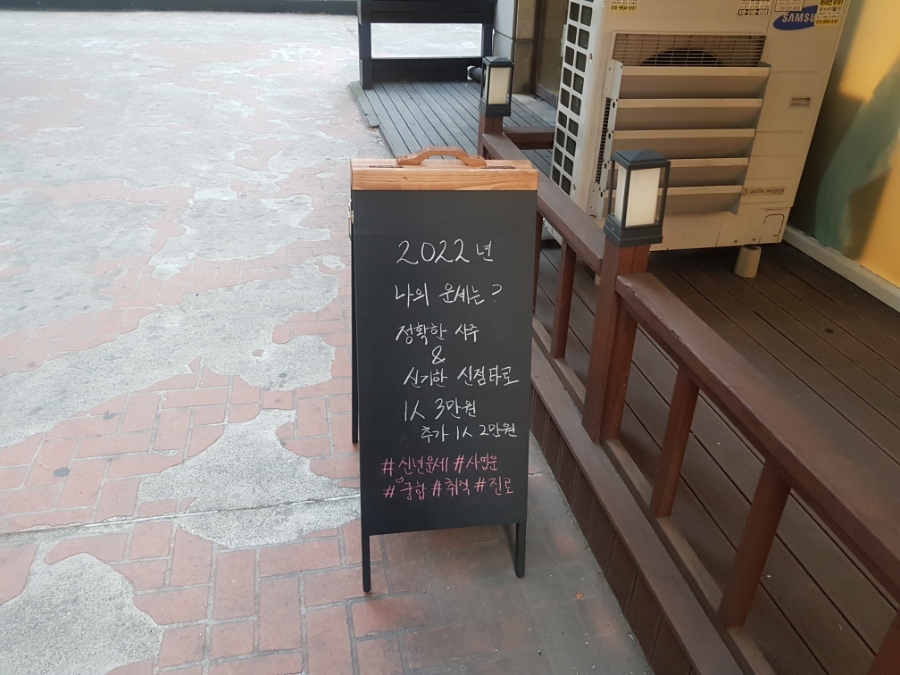 SAMSUNG
DIGITAL INVERTER
2022년
나의 운세는?
정확한 사주
&
신기한 신점타로
1人 3만원
추가 1人 2만원
#신년운세 #사업운
#궁합 #취직 #진로